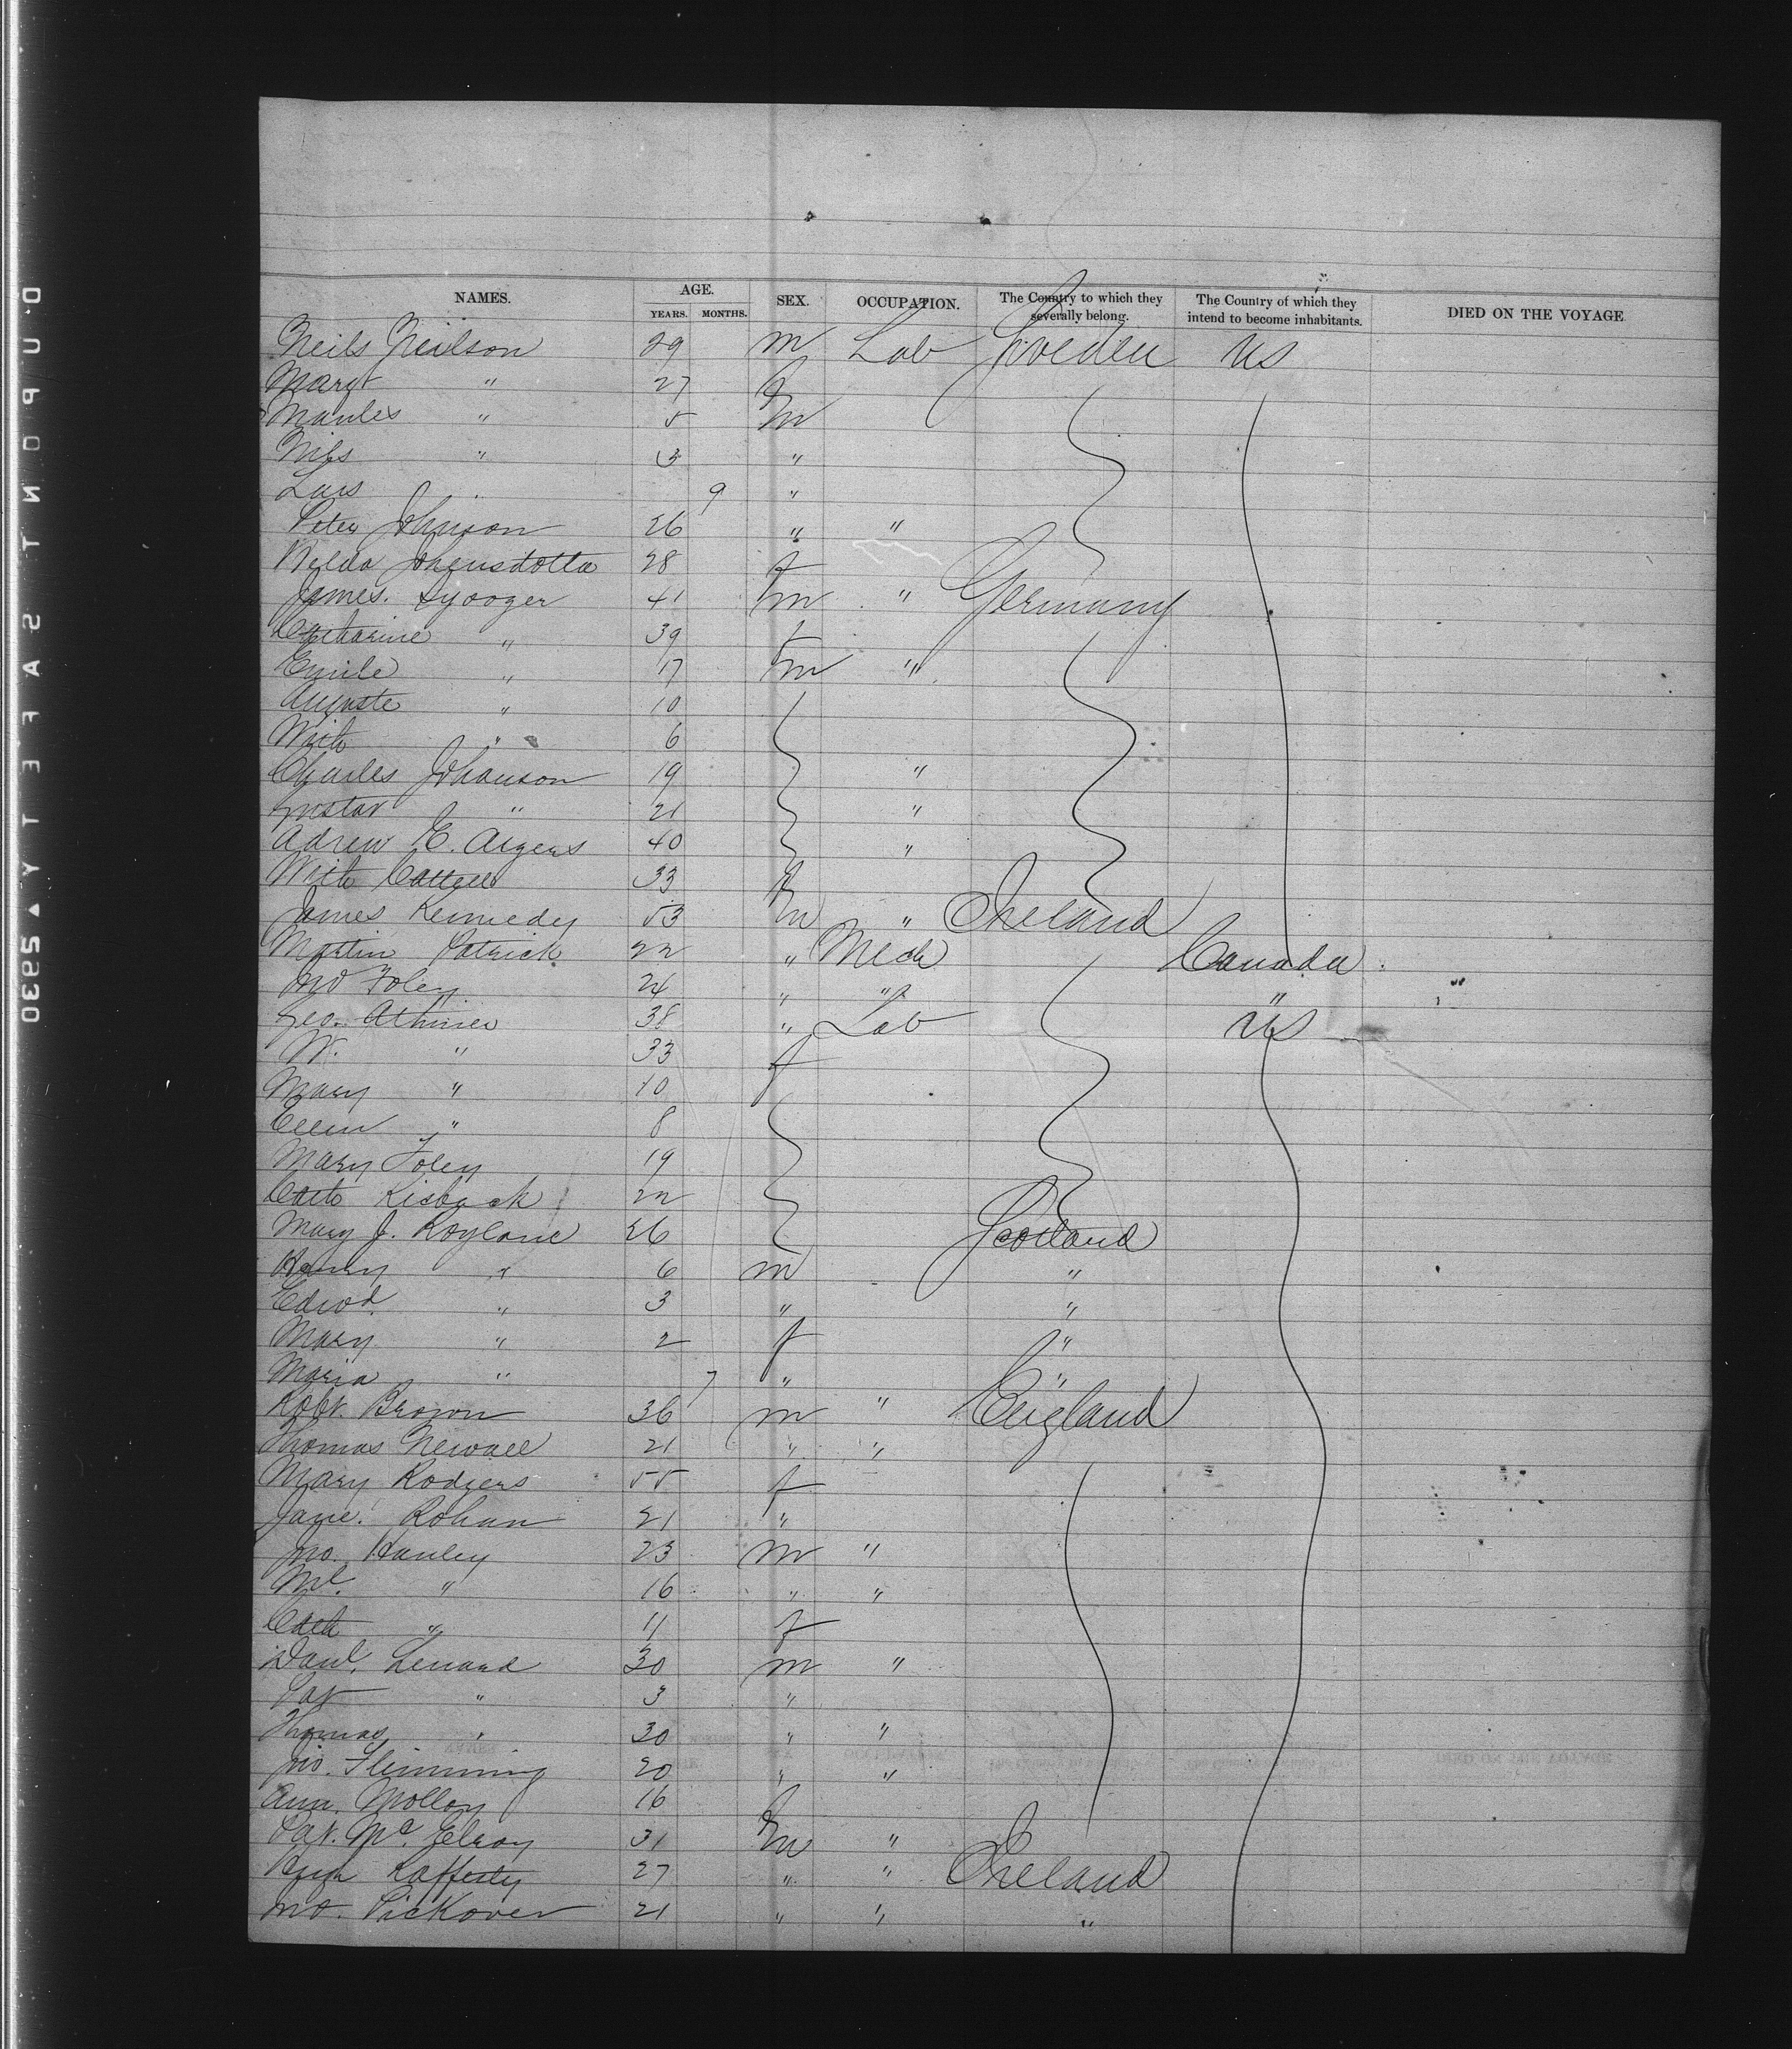 NAMES. AGE. SEX. OCCUPATION. The Country to which they severally belong. The Country of which they intend to become inhabitants. DIED ON THE VOYAGE
YEARS. MONTHS.
Neils Neilson 29 m Lab Sweden US
Margt " 27 f
" 5 m
Nils " 3 "
Lars " 9 "
Peter Johnson 26 " "
28 f
James 41 m " Germany
Catharine " 39 f
Emile " 17 m "
Auguste " 10
" 6
Charles Johanson 19 "
Gustav " 21 "
Adrew E. 40 "
33 f
James Kennedy 53 m " Ireland
Martin Patrick 22 " Mech Canada
Jno Foley 24 " " "
Geo. 38 " Lab US
W. " 33 f
Mary " 10
Ellen " 8
Mary Foley 19
Cath 22
Mary J. 26 Scotland
Henry " 6 m "
Edwd. " 3 " "
Mary " 2 f "
Maria " 7 " "
Robt. Brown 36 m " England
Thomas Newall 21 " "
Mary Rodgers 55 f
Jane. Rohan 21 "
Jno. Hanley 23 m "
Ml. " 16 " "
Cath " 11 f
Danl. Lenard 30 m "
Pat " 3 "
Thomas " 30 " "
Jno. Flemming 20 " "
Ann. Molloy 16 f
Pat. Mc. Elroy 31 m "
Hugh Rafferty 27 " " Ireland
Jno. Pickover 21 " " "